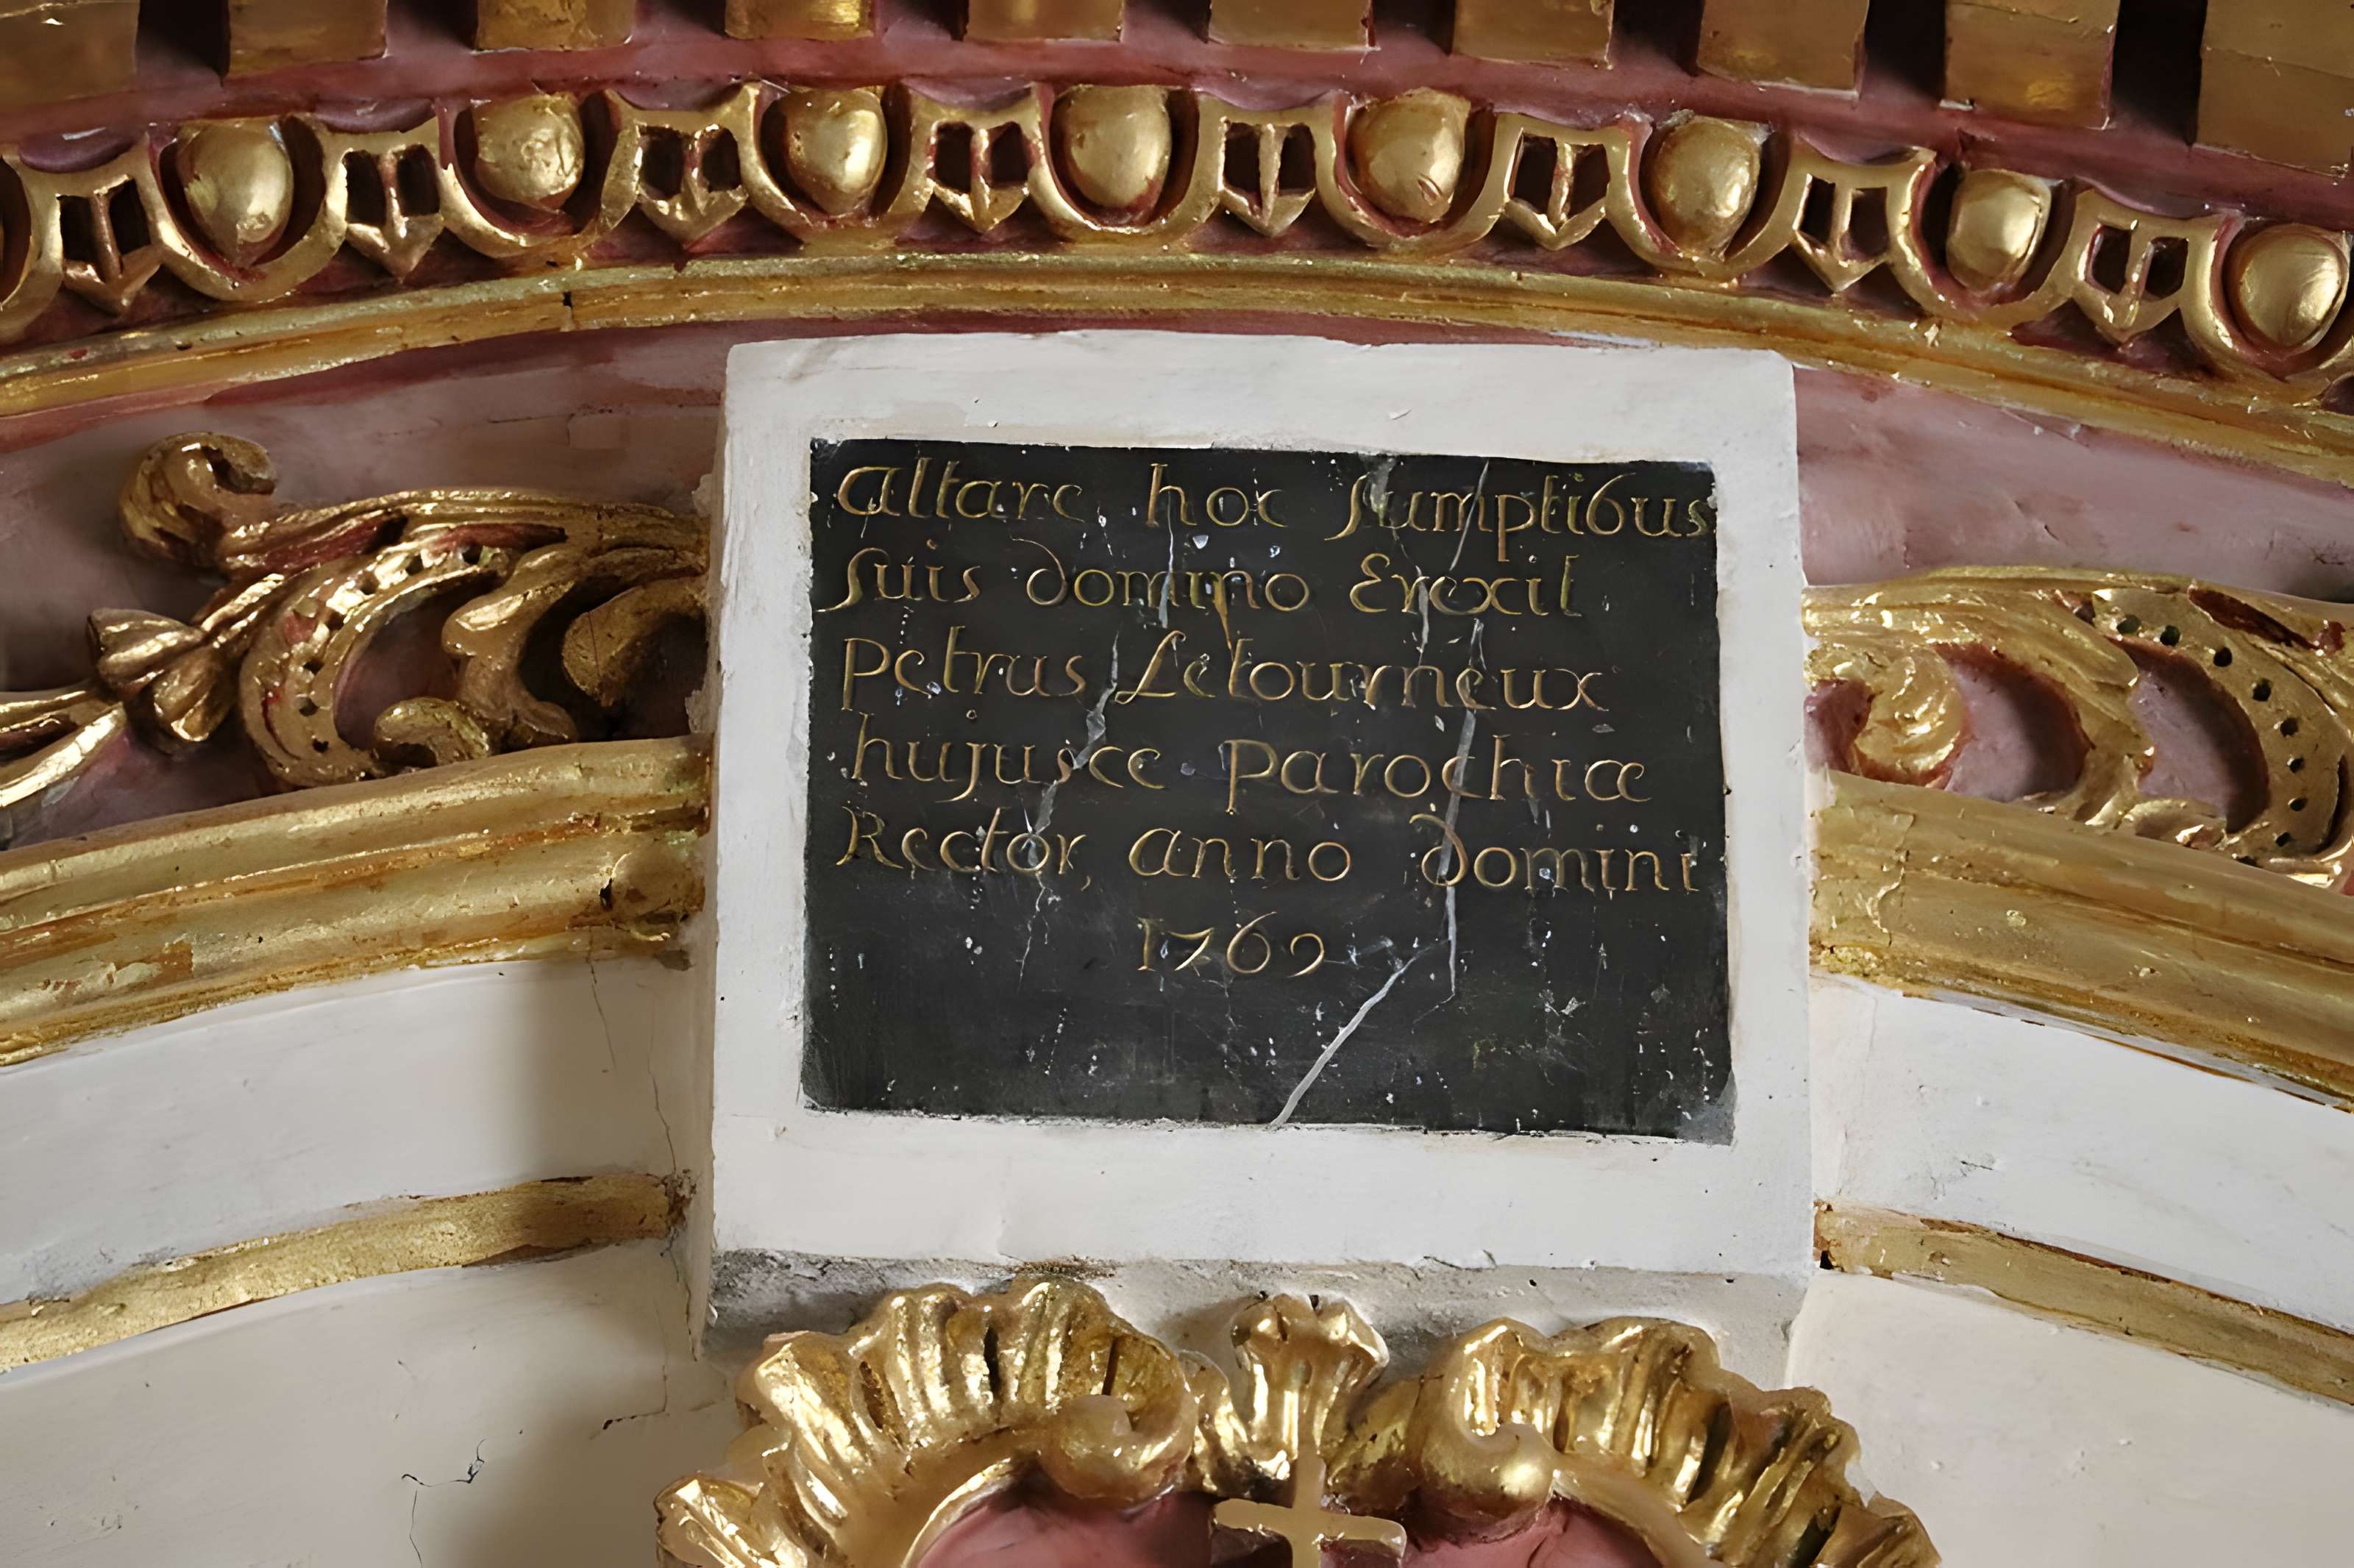 Altare hoc sumptibus
suis domino Erexit
petrus Letourneux
hujusce parochiæ
Rector, anno domini
1769